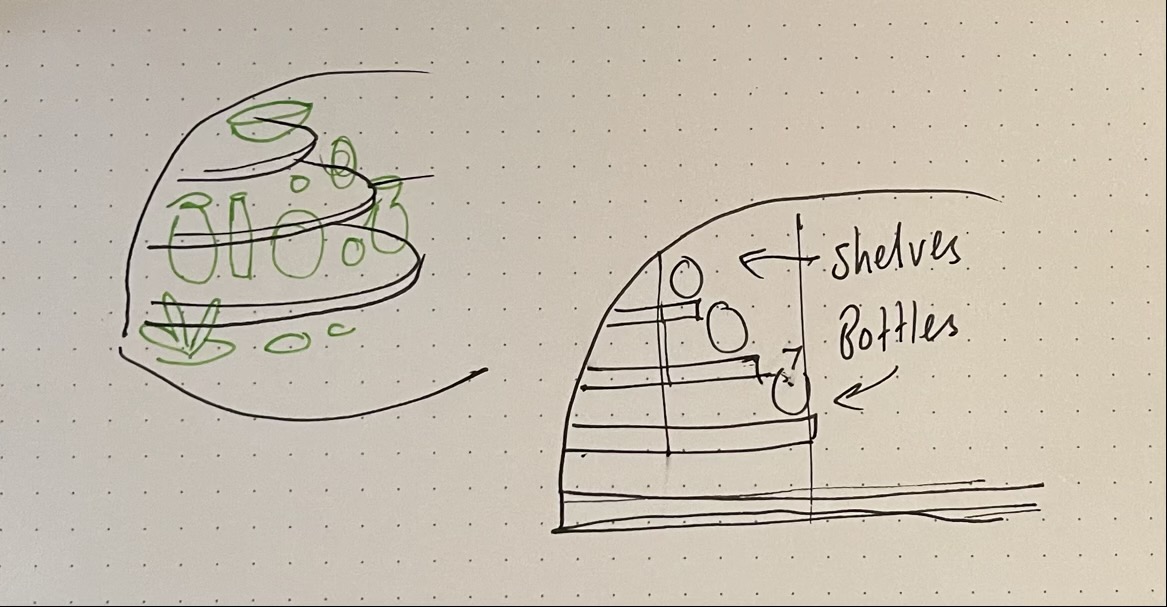 shelves
Bottles